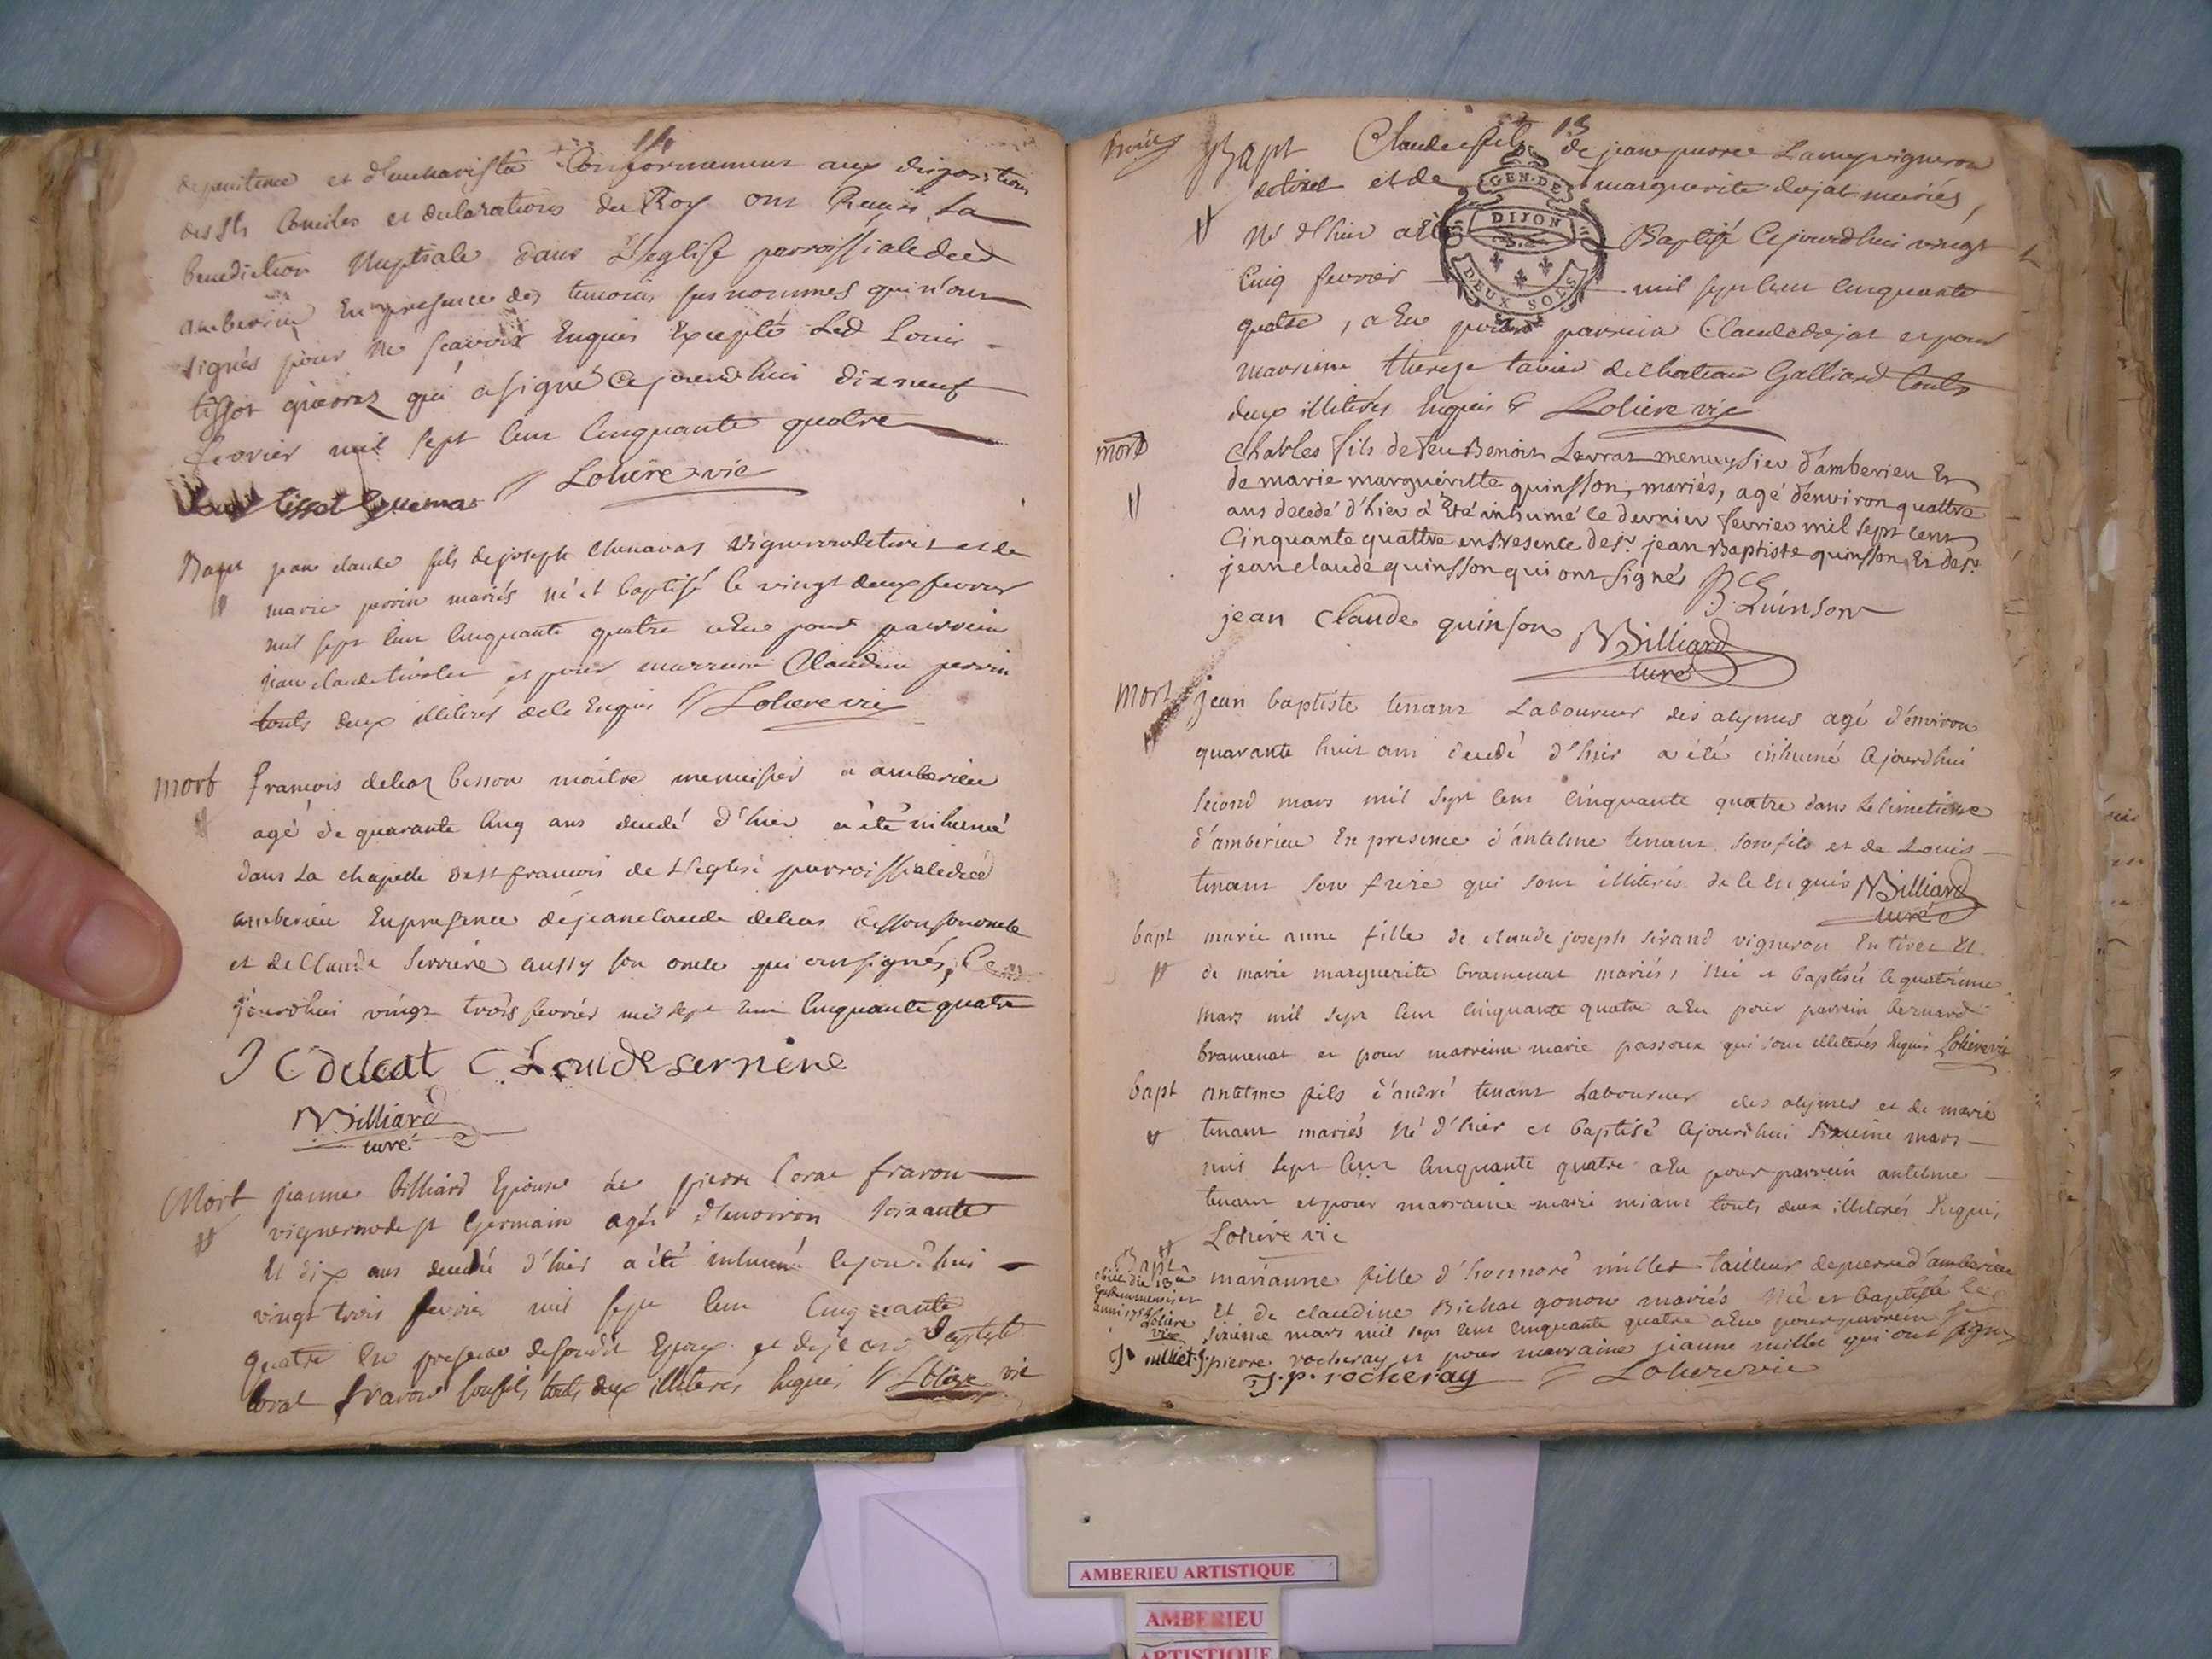 14
depenitence et d'eucharistie Conformement aux dispositions
des Sts Conciles et declarations du Roy ont Reçus La
benediction Nuptiale dans L'eglise parroissiale dud
amberieu En presence des temoins susnommés qui n'ont
signés pour Ne sçavoir Enquis Excepté Led Louis
tissot qui a signé Cejourd'hui dix neuf
fevrier mil sept Cent Cinquante quatre
Loliere vic
tissot
Bapt jean claude fils de joseph Chenavas Vigneron de tiret et de
marie perrin mariés né et baptisé le vingt deux fevrier
mil sept Cent Cinquante quatre a Eu pour parrein
jean claude et pour marreine Claudine perrin
touts deux illiterés de le Enquis Loliere vic
mort françois delias besson maitre menuisier a amberieu
agé de quarante Cinq ans decedé d'hier a été inhumé
dans La chapelle de st francois de L'eglise parroissiale dud
amberieu En presence de jean claude delias besson son oncle
et de Claude Serriere aussy son oncle qui ont signés, Ce
jourdhui vingt trois fevrier mil sept Cent Cinquante quatre
J C deleat Claude serriere
Billiard
curé
Mort jeanne billiard Epouse de pierre Corat fravon
vigneron de st Germain agée d'Environ soixante
Et dix ans decedé d'hier a été inhumé Cejourdhui
vingt trois fevrier mil sept Cent Cinquante
quatre En presence de soudit Epoux et de jean Baptiste
Corat fravon son fils touts deux illiterés Enquis Loliere vic
13
Bapt Claude fils de jean pierre Lamy vigneron
de tiret et de marguerite dejat mariés,
Né d'hier a été Baptisé Cejourdhui vingt
Cinq fevrier mil sept Cent Cinquante
quatre, a Eu pour parrein Claude dejat et pour
marreine therese tavier de chateau Galliard touts
deux illiterés Enquis Loliere vic
GEN. DE
DIJON
DEUX SOLS
mort Charles fils de feu Benoit Levrat menuysier d'amberieu Et
de marie marguéritte quinsson, mariés, agé d'environ quattre
ans decedé d'hier à Eté inhumé le dernier fevrier mil sept cent
Cinquante quattre en Presence de sr. jean Baptiste quinsson Et de sr.
jean claude quinsson qui ont signés
B. Quinson
jean claude quinson Billiard
curé
mort jean baptiste tenant Laboureur des alymes agé d'environ
quarante huit ans decedé d'hier a été inhumé Cejourdhui
second mars mil sept Cent Cinquante quatre dans Le cimetiere
d'amberieu En presence d'antelme tenant son fils et de Louis
tenant son frere qui sont illiterés de le Enquis Billiard
curé
bapt marie anne fille de claude joseph sirand vigneron En tiret Et
de marie marguerite bramenat mariés, née et baptisée le quatrieme
mars mil sept Cent Cinquante quatre a Eu pour parrein bernard
bramenat et pour marreine marie passoux qui sont illiterés Enquis Loliere vic
bapt antelme fils d'andré tenant Laboureur des alymes et de marie
tenant mariés Né d'hier et baptisé Cejourdhui Sixieme mars
mil sept Cent Cinquante quatre a Eu pour parrein antelme
tenant et pour marraine marie miant touts deux illiterés Enquis
Loliere vic
Bapt
marianne fille d'honnoré millet tailleur de pierre d'amberieu
Et de claudine Bichat gonon mariés Née et baptisée le
sixieme mars mil sept Cent Cinquante quatre a Eu pour parrein
pierre rocheray et pour marraine jeanne millet qui ont signés
Loliere
vic
J. p. rocheray Loliere vic
AMBERIEU ARTISTIQUE
AMBERIEU
ARTISTIQUE